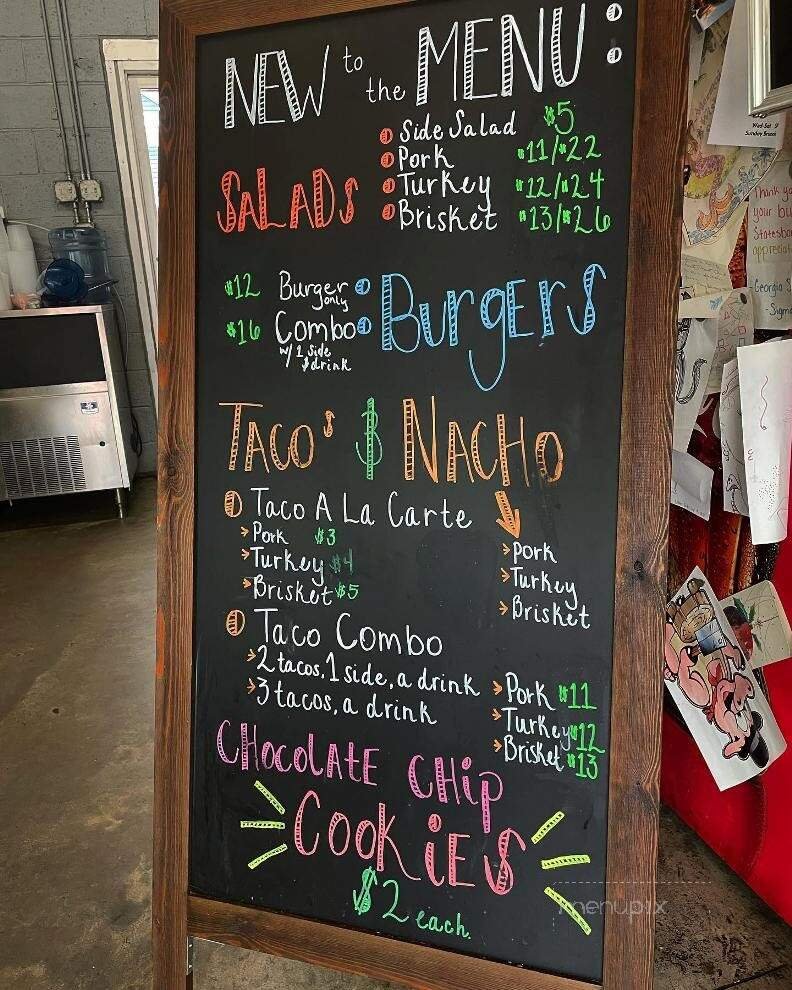 NEW to the MENU:
SALADS
Side Salad $5
Pork $11/$22
Turkey $12/$24
Brisket $13/$26
$12 Burger only : BurgErS
$16 Combo w/ 1 side & drink
TACO's & NACHO
Taco A La Carte
> Pork $3
> Turkey $4
> Brisket $5
> Pork
> Turkey
> Brisket
Taco Combo
> 2 tacos, 1 side, a drink
> 3 tacos, a drink
> Pork $11
> Turkey $12
> Brisket $13
CHocoLATE CHip
CooKiES
$2 each.
menupix
Wed-Sat
Sunday
Thank you
your bu
Statesbo
appreciat
- Georgia S
- Sigm